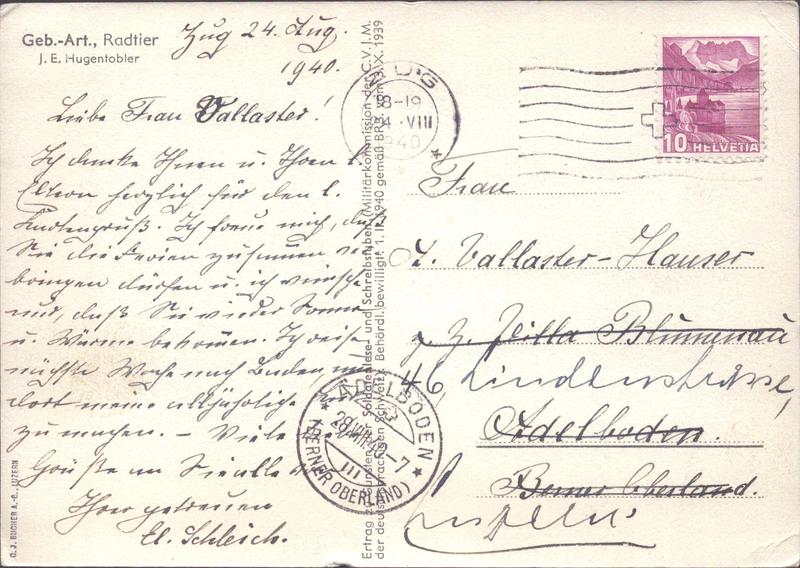 Geb.-Art., Radtier
J. E. Hugentobler
Zug 24. Aug.
1940.
Liebe Frau Vallaster!
Ich danke Ihnen u. Ihren l.
Eltern herzlich für den l.
Kartengruß. Ich freue mich, daß
Sie die Ferien zusammen ver-
bringen dürfen u. ich wünsche
nur, daß Sie wieder Sonne
u. Wärme bekommen. Ich reise
nächste Woche nach Baden um
dort meine alljährliche Kur
zu machen. – Viele
Grüße an Sie alle
Ihre getreuen
El. Schleich.
G. J. BUCHER A.-G., LUZERN
Ertrag zugunsten der Soldatenlese- und Schreibstuben (Militärkommission der C.V.J.M.
der deutschsprachigen Schweiz). Behördl. bewilligt 1. II. 1940 gemäß BRB. vom 3. X. 1939
ZUG
18-19
24. VIII
1940
10 HELVETIA
Frau
A. Vallaster-Hauser
z. Z. Villa Blumenau
46, Lindenstrasse,
Adelboden.
Berner Oberland.
ADELBODEN
(BERNER OBERLAND)